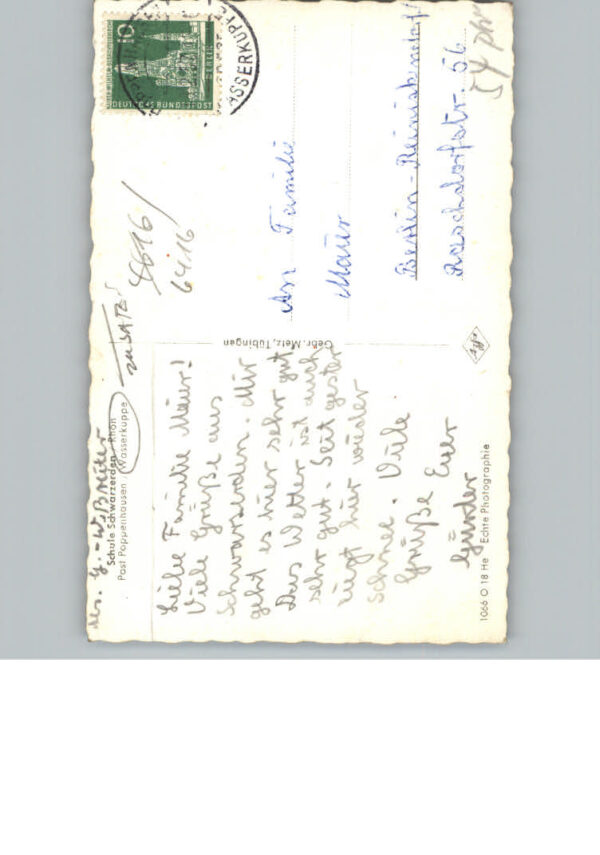 Schule Schwarzerden Rhön
Post Poppenhausen / Wasserkuppe
ZUSATZ
Liebe Familie Maur!
Viele Grüße aus
Schwarzerden. Mir
geht es hier sehr gut
Das Wetter ist auch
sehr gut. Seit gester
liegt hier wieder
Schnee. Viele
Grüße Euer
Günter
1066 O 18 He Echte Photographie
Gebr. Metz, Tübingen
10
DEUTSCHE BUNDESPOST
BERLIN
WASSERKUPPE
6416
An Familie
Maur
Berlin-Reinickendorf
Raschdorfstr. 56
54